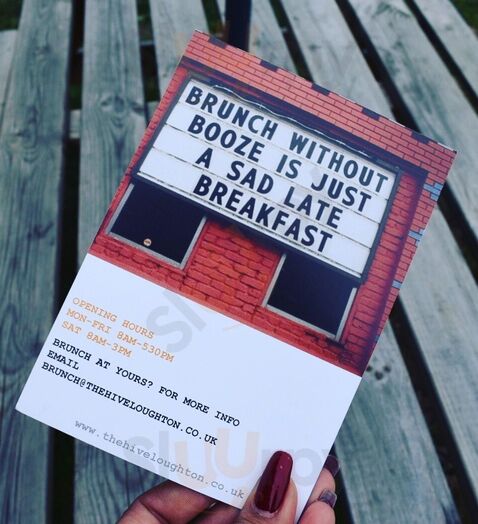 BRUNCH WITHOUT
BOOZE IS JUST
A SAD LATE
BREAKFAST
OPENING HOURS
MON-FRI 8AM-530PM
SAT 8AM-3PM
BRUNCH AT YOURS? FOR MORE INFO
EMAIL
BRUNCH@THEHIVELOUGHTON.CO.UK
www.thehiveloughton.co.uk